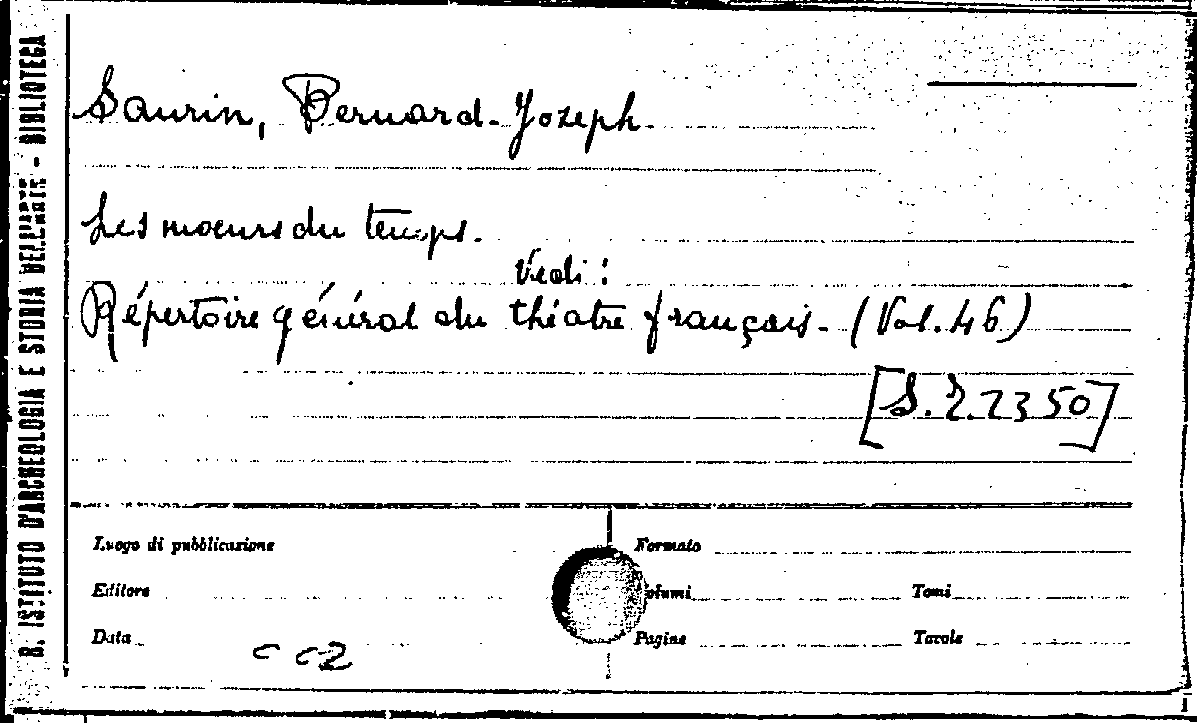 R. ISTITUTO D'ARCHEOLOGIA E STORIA DELL'ARTE - BIBLIOTECA
Saurin, Bernard-Jozeph.
Les moeurs du temps.
Vedi:
Répertoire général du théatre français. (Vol. 46)
[S.R. 2350]
Luogo di pubblicazione
Formato
Editore
Volumi
Tomi
Data
Pagine
Tavole